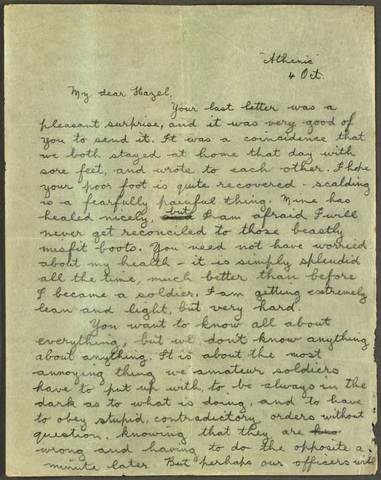 "Athenic"
4 Oct.
My dear Hazel,
Your last letter was a
pleasant surprise, and it was very good of
you to send it. It was a coincidence that
we both stayed at home that day with
sore feet, and wrote to each other. I hope
your poor foot is quite recovered - scalding
is a fearfully painful thing. Mine has
healed nicely, but I am afraid I will
never get reconciled to those beastly
misfit boots. You need not have worried
about my health - it is simply splendid
all the time, much better than before
I became a soldier. I am getting extremely
lean and light, but very hard.
You want to know all about
everything, but we don't know anything
about anything. It is about the most
annoying thing we amateur soldiers
have to put up with, to be always in the
dark as to what is doing, and to have
to obey stupid, contradictory orders without
question, knowing that they are
wrong and having to do the opposite a
minute later. But perhaps our officers will